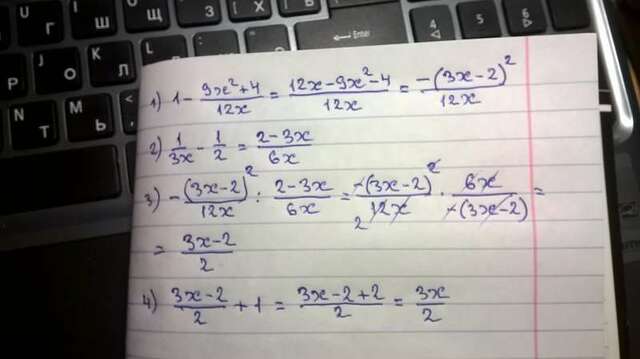 1) 1 - \frac{9x^2+4}{12x} = \frac{12x-9x^2-4}{12x} = \frac{-(3x-2)^2}{12x}
2) \frac{1}{3x} - \frac{1}{2} = \frac{2-3x}{6x}
3) -\frac{(3x-2)^2}{12x} : \frac{2-3x}{6x} = \frac{-(3x-2)^2}{12x} \cdot \frac{6x}{-(3x-2)} =
= \frac{3x-2}{2}
4) \frac{3x-2}{2} + 1 = \frac{3x-2+2}{2} = \frac{3x}{2}
Enter